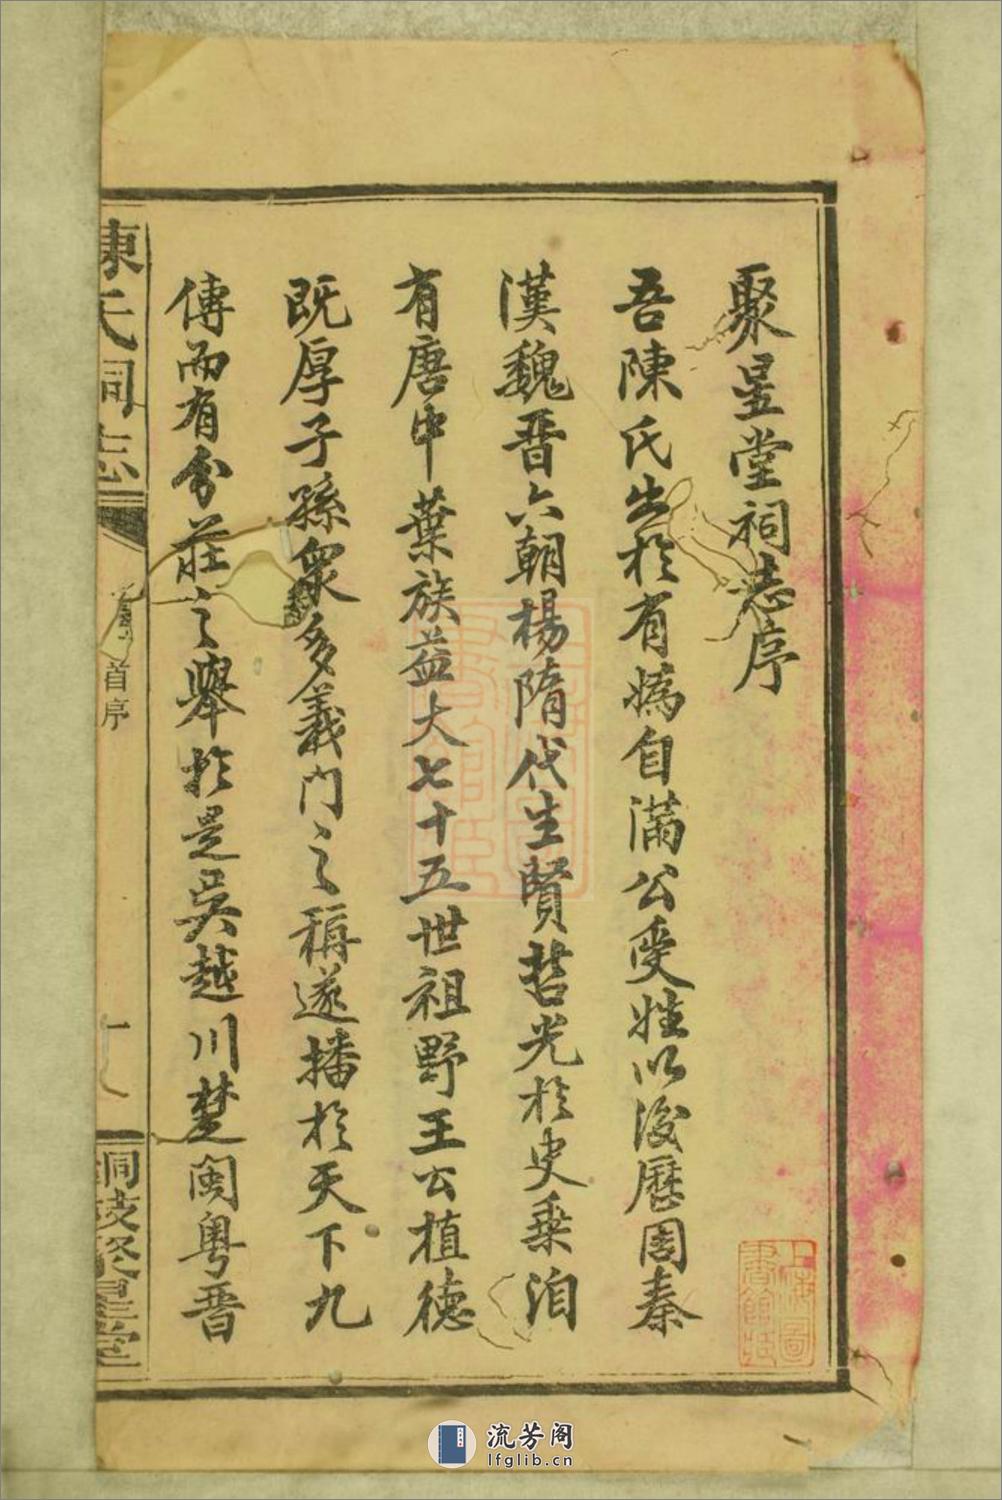 聚星堂祠志序
吾陳氏出於有媯自滿公受姓以後歷周秦
漢魏晉六朝楊隋代生賢哲光於史乘洎
有唐中葉族益大七十五世祖野王公植德
既厚子孫眾多義門之稱遂播於天下九
傳而有分莊之舉於是吳越川楚閩粵晉
陳氏祠志
首序
聚星堂
上海圖書館藏
流芳阁
lfglib.cn